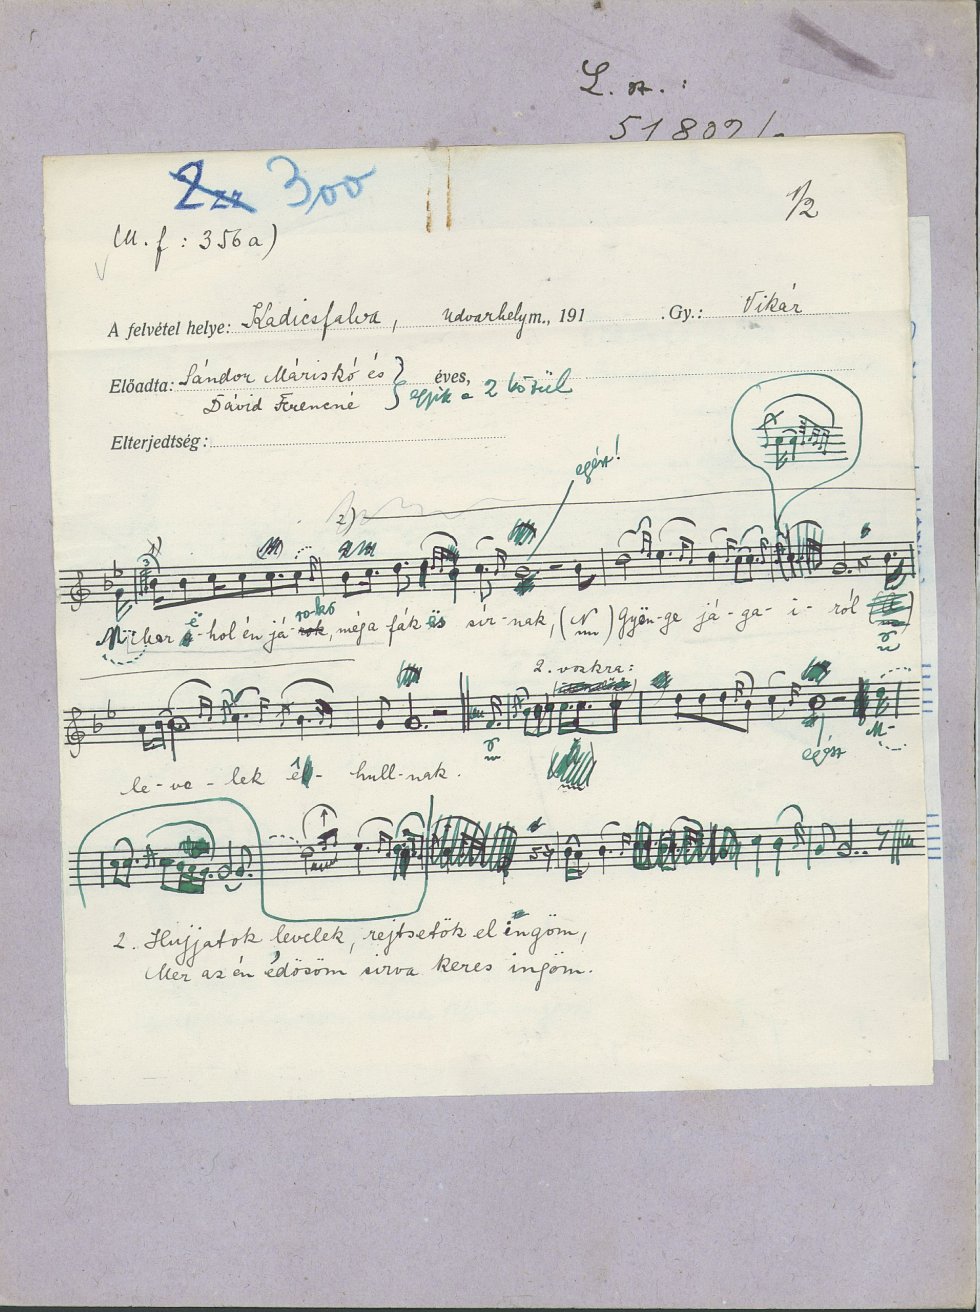 L. sz. :
51802/
300
1/2
(M. f : 356a)
A felvétel helye: Kadicsfalva, Udvarhelym., 191 . Gy.: Vikár
Előadta: Sándor Máriskó és éves,
Dávid Ferencné egyik a 2 közül
Elterjedtség:
egész!
2)
Mikor a-hol én já-rok, még a fák és sír-nak, ( ) Gyön-ge já-ga-i-ról
2. vszkra:
le-ve-lek el- hull-nak.
egész
2. Hujjatok levelek, rejtsetök el ingöm,
Mer az én édösöm sirva keres ingöm.